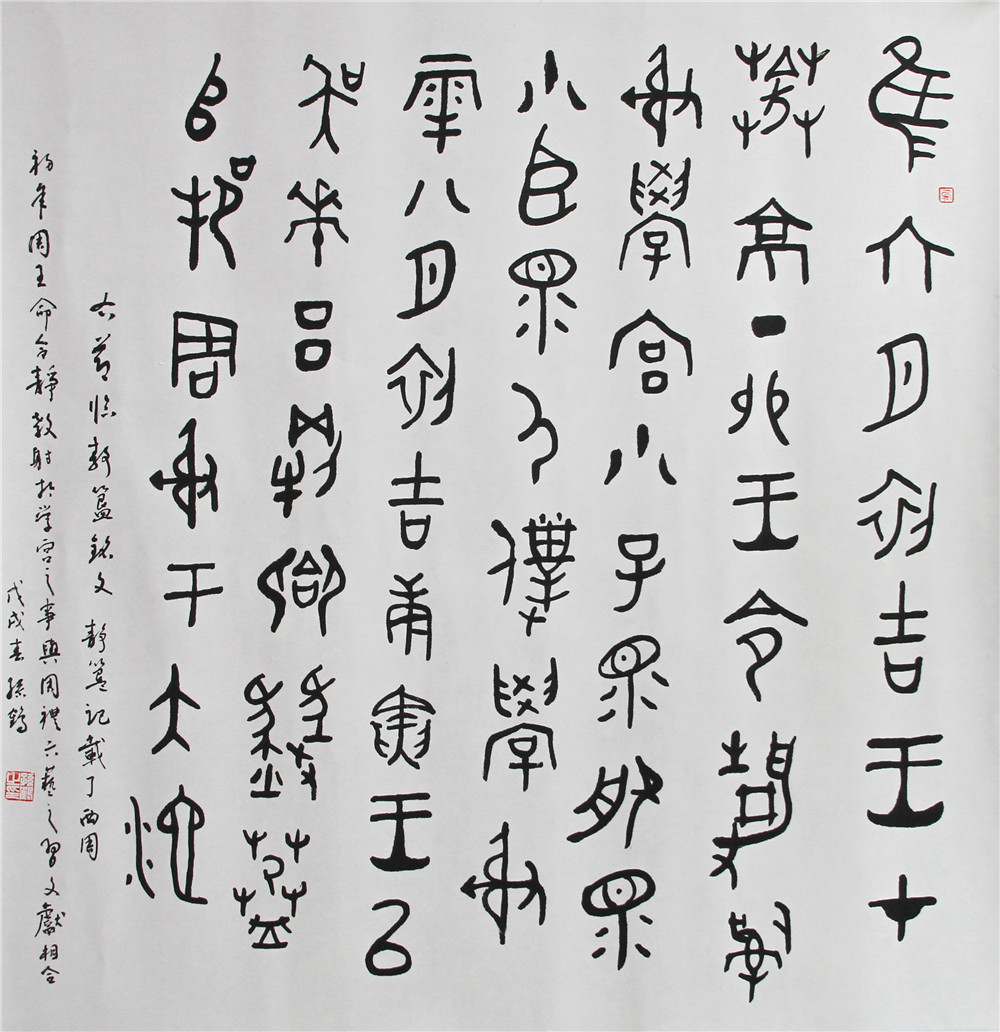 隹六月初吉王才
𦱤京丁卯王令靜𤔲
射學宮小子眔服眔
小臣眔尸僕學射
雩八月初吉庚寅王以
吳𠦪呂㓻卿
𠂤邦周射于大池
右節臨靜簋銘文 靜簋記載了西周
初年周王命令靜教射於学宮之事與周禮六藝之習文獻相合
戊戌春孫鶴